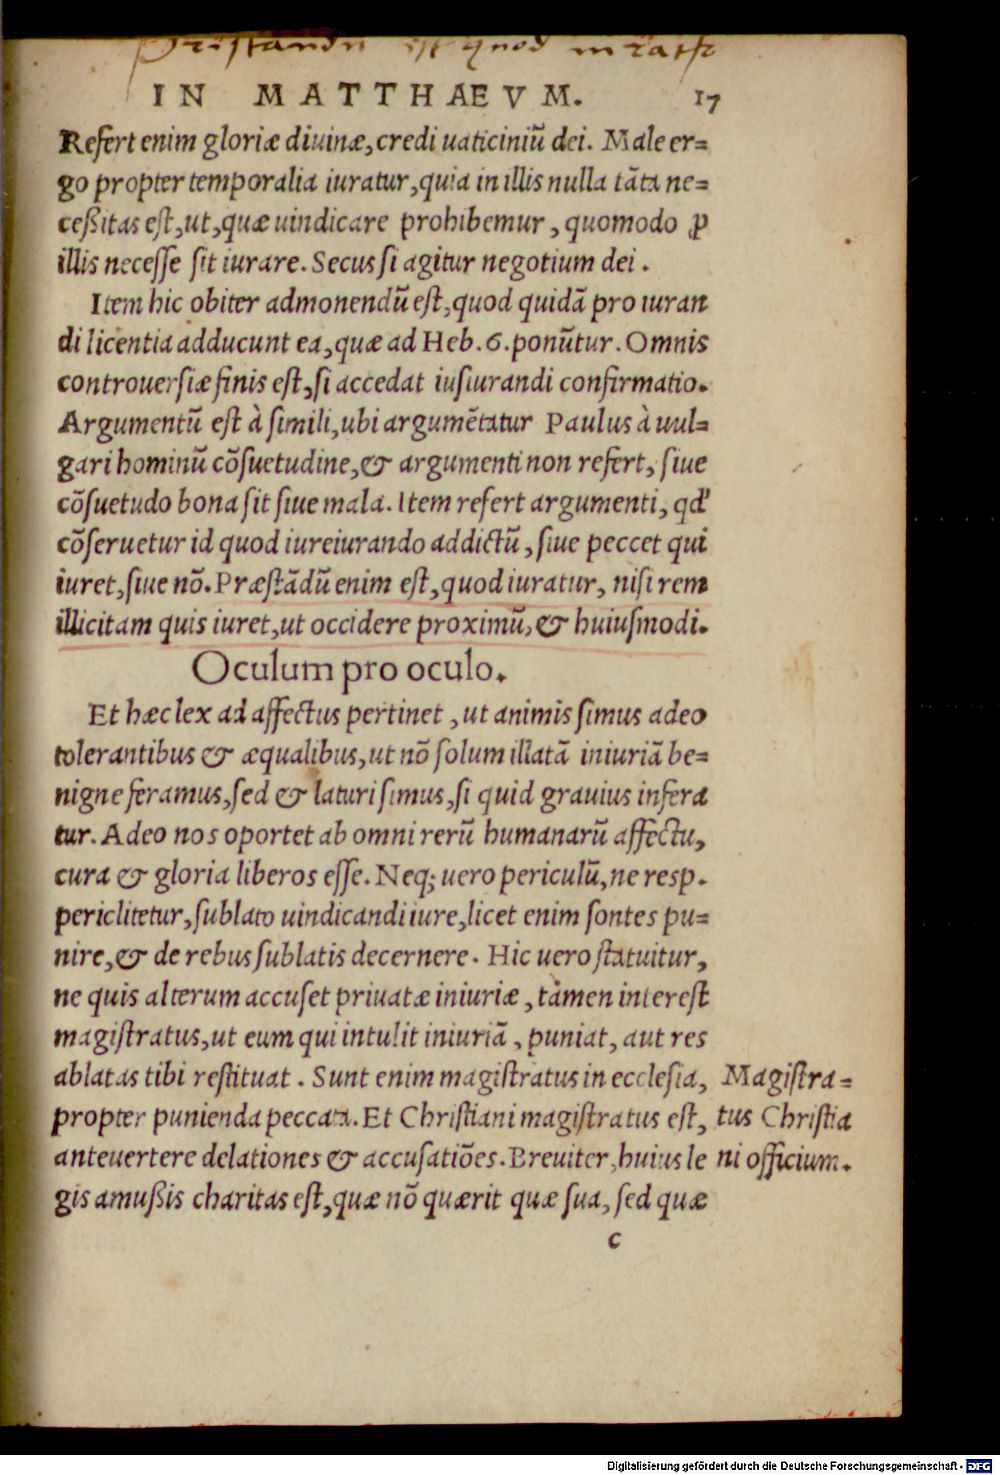 Prestandū est quod
IN MATTHAEVM. 17
Refert enim gloriæ diuinæ, credi uaticiniū dei. Male er=
go propter temporalia iuratur, quia in illis nulla tāta ne=
ceßitas est, ut, quæ uindicare prohibemur, quomodo ꝓ
illis necesse sit iurare. Secus si agitur negotium dei.
Item hic obiter admonendū est, quod quidā pro iuran
di licentia adducunt ea, quæ ad Heb. 6. ponūtur. Omnis
controuersiæ finis est, si accedat iusiurandi confirmatio.
Argumentū est à simili, ubi argumētatur Paulus à uul=
gari hominū cōsuetudine, & argumenti non refert, siue
cōsuetudo bona sit siue mala. Item refert argumenti, qd'
cōseruetur id quod iureiurando addictū, siue peccet qui
iuret, siue nō. Præstādū enim est, quod iuratur, nisi rem
illicitam quis iuret, ut occidere proximū, & huiusmodi.
Oculum pro oculo.
Et hæc lex ad affectus pertinet, ut animis simus adeo
tolerantibus & æqualibus, ut nō solum illatā iniuriā be=
nigne feramus, sed & laturi simus, si quid grauius infera
tur. Adeo nos oportet ab omni rerū humanarū affectu,
cura & gloria liberos esse. Neq; uero periculū, ne resp.
periclitetur, sublato uindicandi iure, licet enim sontes pu=
nire, & de rebus sublatis decernere. Hic uero statuitur,
ne quis alterum accuset priuatæ iniuriæ, tamen interest
magistratus, ut eum qui intulit iniuriā, puniat, aut res
ablatas tibi restituat. Sunt enim magistratus in ecclesia,
propter punienda peccata. Et Christiani magistratus est,
anteuertere delationes & accusatiōes. Breuiter, huius le
gis amußis charitas est, quæ nō quærit quæ sua, sed quæ
c
Magistra=
tus Christia
ni officium.
Digitalisierung gefördert durch die Deutsche Forschungsgemeinschaft - DFG